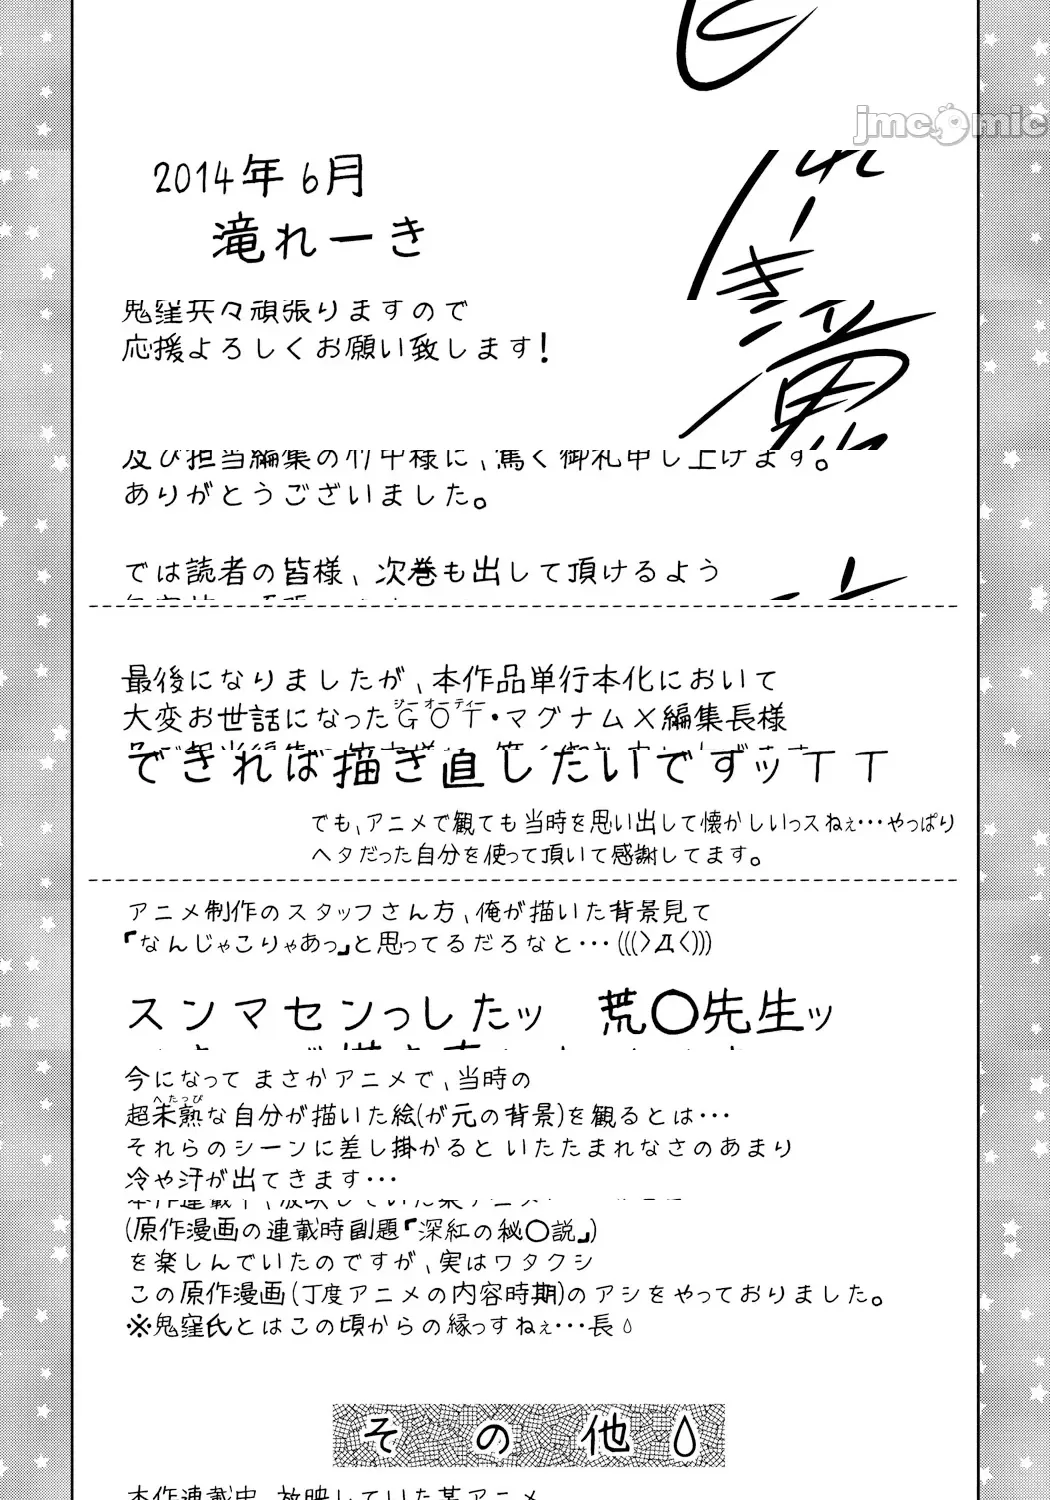 jmcomic
2014年6月
滝れーき
鬼窪共々頑張りますので
応援よろしくお願い致します!
及び担当編集の竹中様に、篤く御礼申し上げます。
ありがとうございました。
では読者の皆様、次巻も出して頂けるよう
最後になりましたが、本作品単行本化において
ジーオーティー
大変お世話になったGOT・マグナム×編集長様
できれば描き直したいですッTT
でも、アニメで観ても当時を思い出して懐かしいっスねぇ・・・やっぱり
ヘタだった自分を使って頂いて感謝してます。
アニメ制作のスタッフさん方、俺が描いた背景見て
『なんじゃこりゃあっ』と思ってるだろなと・・・(((>Д<)))
スンマセンっしたッ 荒〇先生ッ
今になって まさかアニメで、当時の
へたっぴ
超未熟な自分が描いた絵(が元の背景)を観るとは・・・
それらのシーンに差し掛かると いたたまれなさのあまり
冷や汗が出てきます・・・
(原作漫画の連載時副題『深紅の秘〇説』)
を楽しんでいたのですが、実はワタクシ
この原作漫画(丁度アニメの内容時期)のアシをやっておりました。
※鬼窪氏とはこの頃からの縁っすねぇ・・・長
その他
本作連載中、放映していた某アニメ